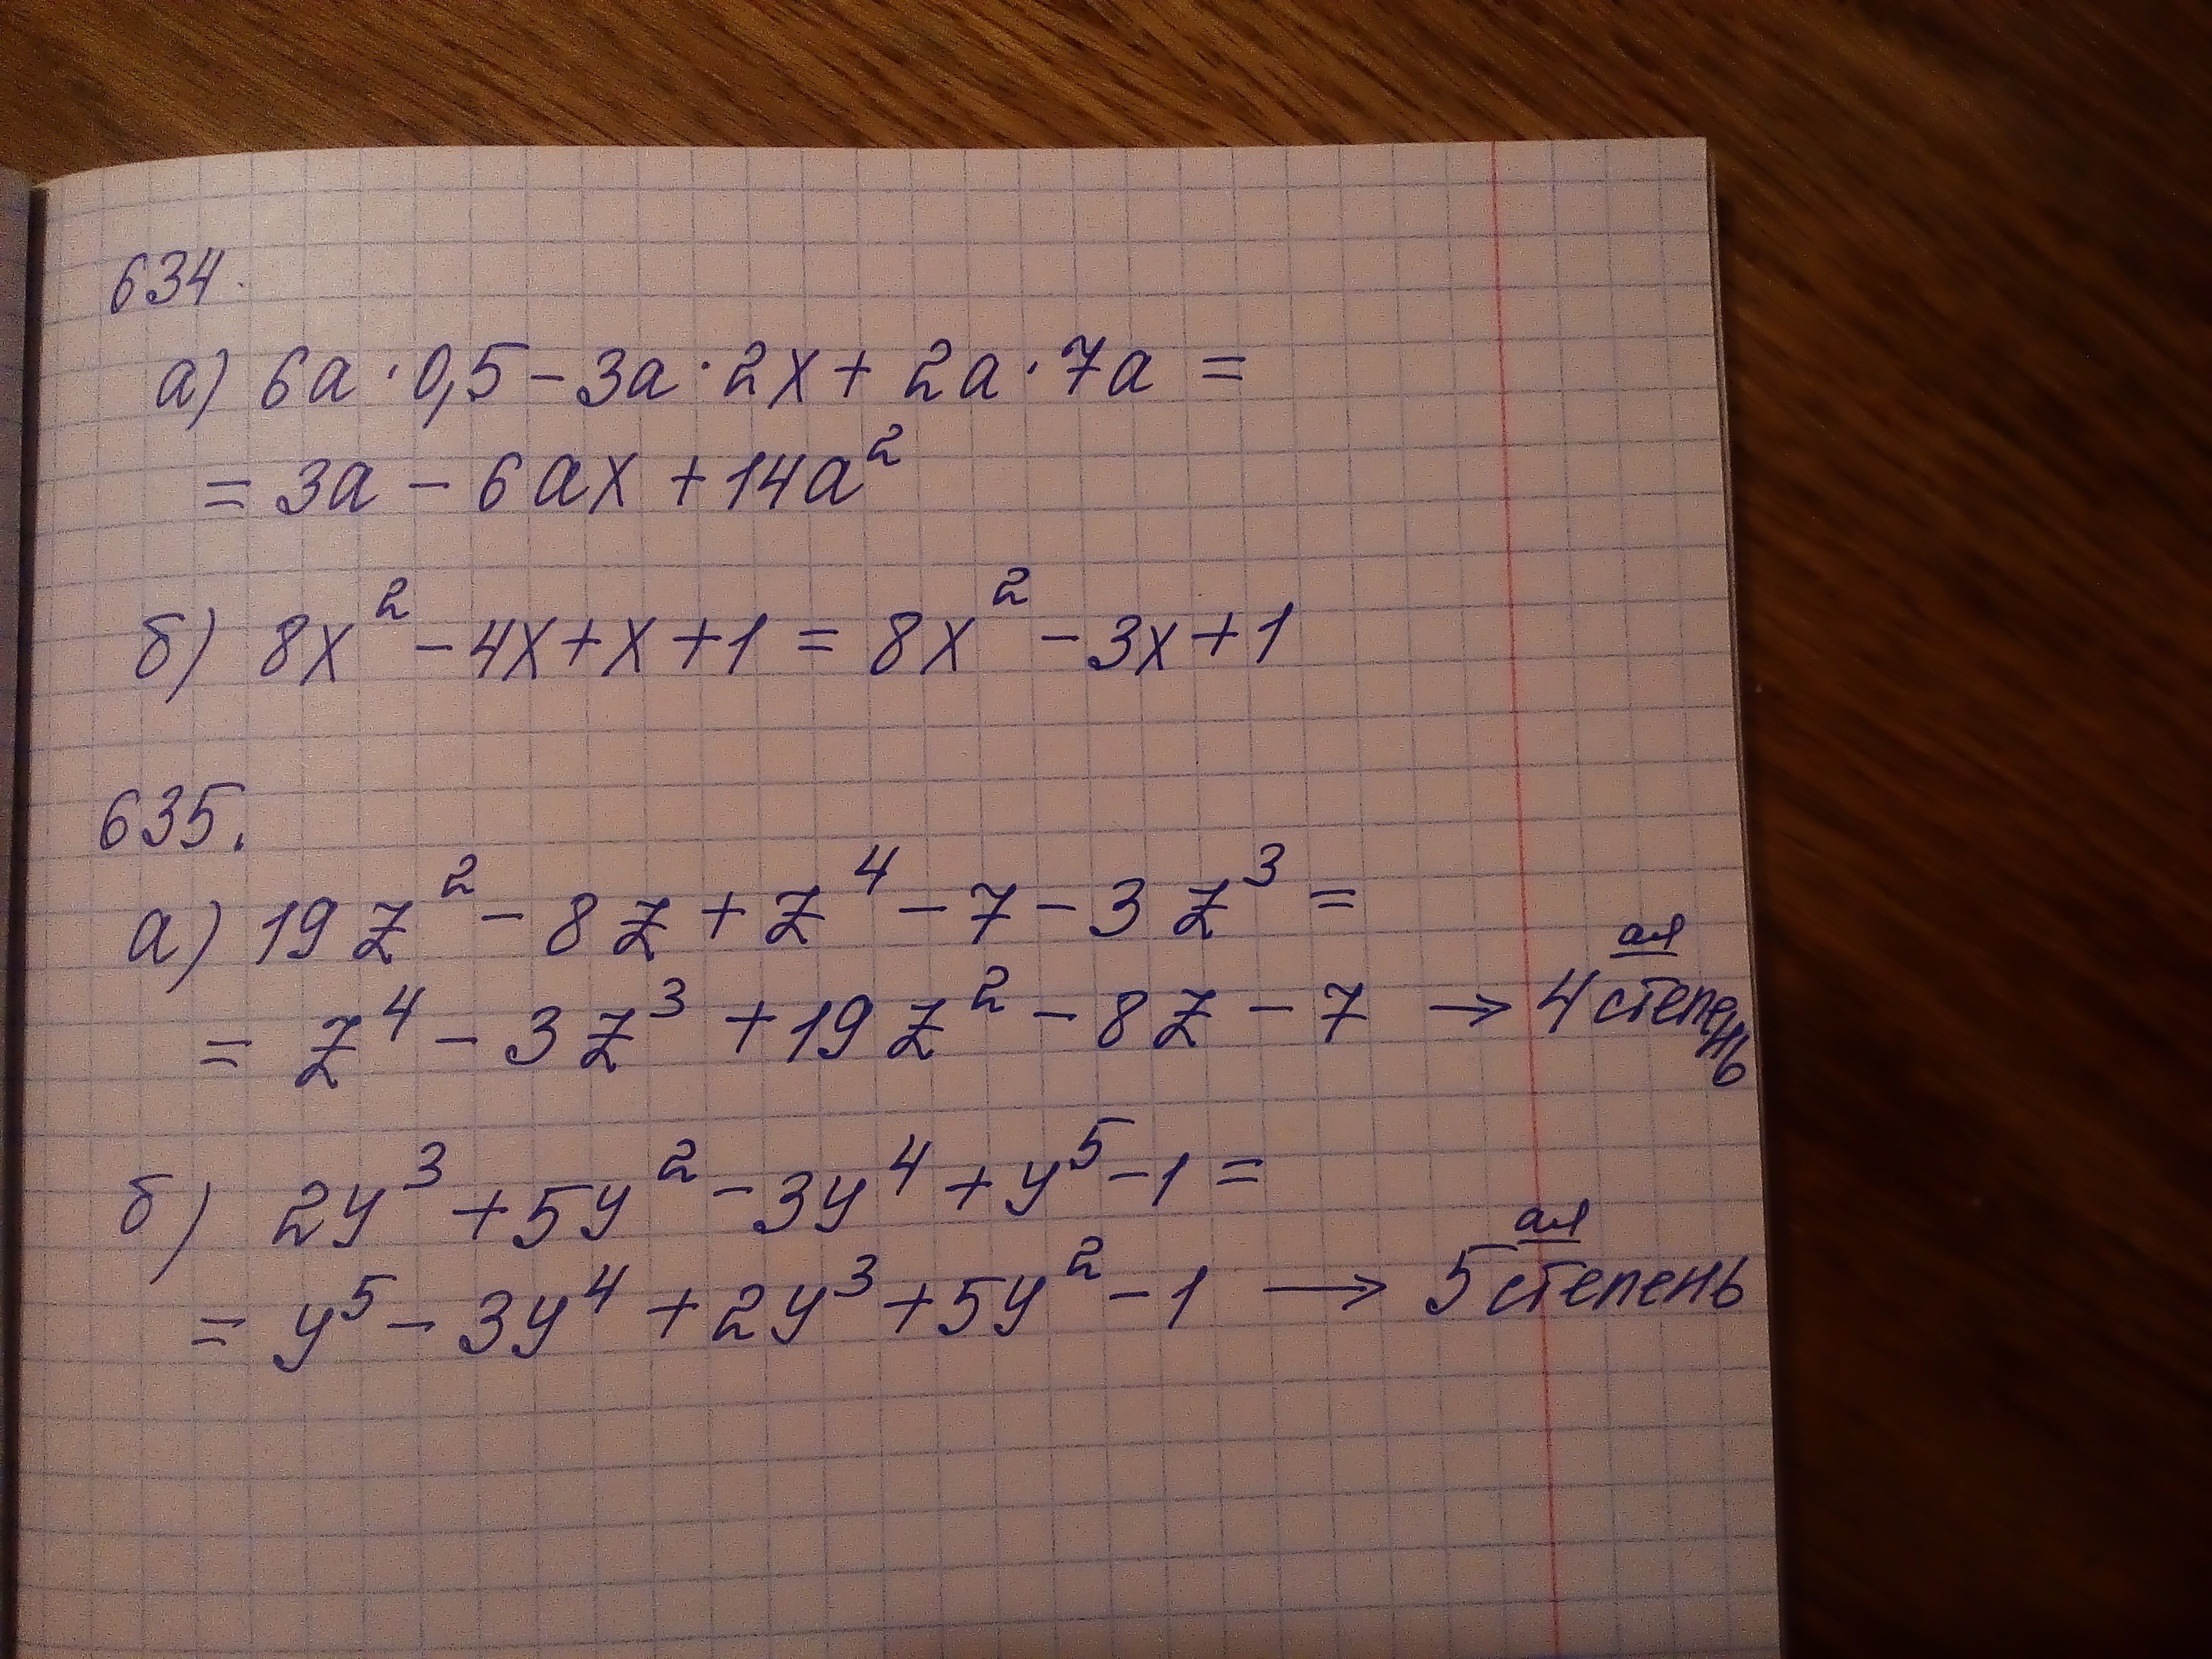 634.
а) 6a · 0,5 – 3a · 2x + 2a · 7a =
= 3a – 6ax + 14a²
б) 8x² – 4x + x + 1 = 8x² – 3x + 1
635.
а) 19z² – 8z + z⁴ – 7 – 3z³ =
= z⁴ – 3z³ + 19z² – 8z – 7 → 4ая степень
б) 2y³ + 5y² – 3y⁴ + y⁵ – 1 =
= y⁵ – 3y⁴ + 2y³ + 5y² – 1 → 5ая степень